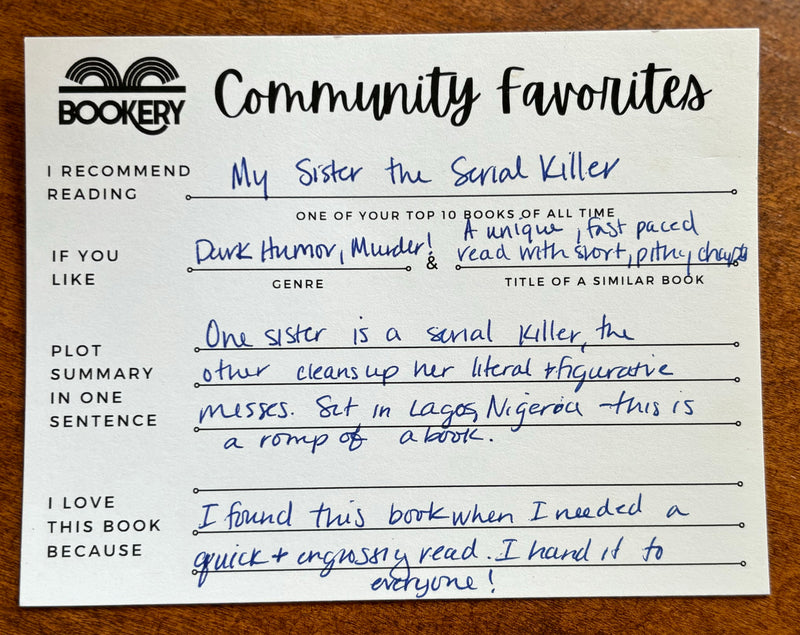 BOOKERY
Community Favorites
I RECOMMEND
READING
My Sister the Serial Killer
ONE OF YOUR TOP 10 BOOKS OF ALL TIME
IF YOU
LIKE
Dark Humor, Murder!
GENRE
&
A unique, fast paced
read with short, pithy, chapts
TITLE OF A SIMILAR BOOK
PLOT
SUMMARY
IN ONE
SENTENCE
One sister is a serial killer, the
other cleans up her literal + figurative
messes. Set in Lagos, Nigeria - this is
a romp of a book.
I LOVE
THIS BOOK
BECAUSE
I found this book when I needed a
quick + engrossig read. I hand it to
everyone!